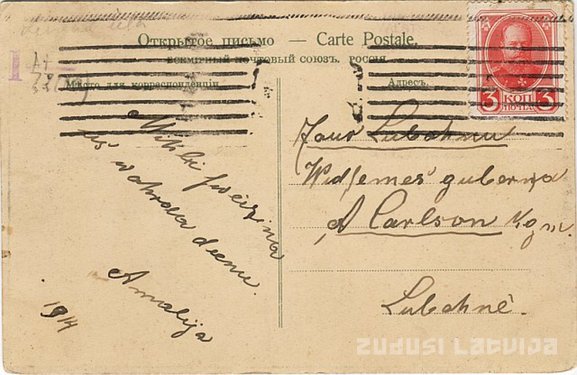 Открытое письмо — Carte Postale.
ВСЕМІРНЫЙ ПОЧТОВЫЙ СОЮЗЪ. РОССІЯ.
Мѣсто для корреспонденціи
Адресъ.
3 КОП 3
Mihļi sweizina
us wahrda deenu.
Amalija
1914
Widsemes guberņa
A Carlson kgm.
Lubahnē.
ZUDUSI LATVIJA